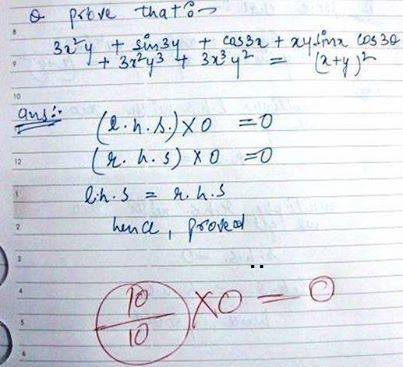 Q prove that:-
3x²y + sin3y + cos3x + xy sinx cos3θ
+ 3x²y³ + 3x³y² = (x+y)²
ans:-
(l.h.s.)×0 =0
(r.h.s)×0 =0
l.h.s = r.h.s
hence, proved
10/10 ×0 = 0